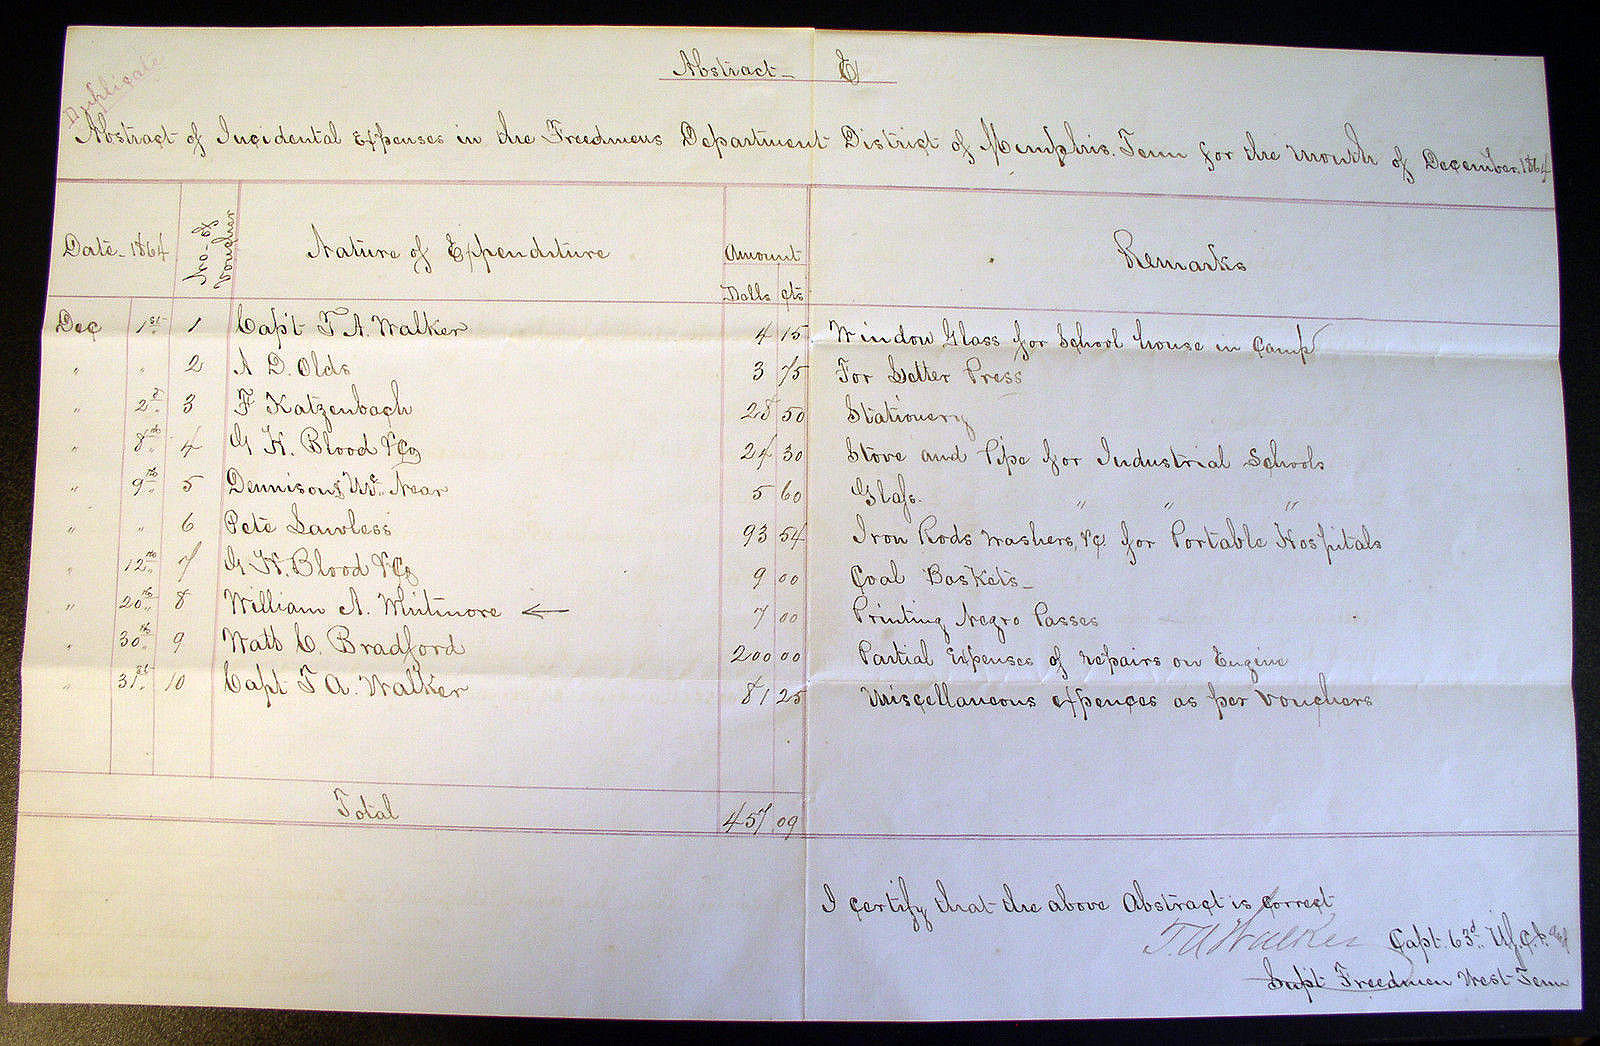 Duplicate
Abstract - E
Abstract of Incidental Expenses in the Freedmens Department District of Memphis. Tenn for the month of December. 1864
Date - 1864 No - of Voucher Nature of Expenditure Amount Dolls cts Remarks
Dec 1st 1 Capt T A. Walker 4 15 Window Glass for School house in Camp
" " 2 A D. Olds 3 75 For Letter Press
" 2d 3 F Katzenbach 28 50 Stationery
" 8th 4 G H. Blood & Co 24 30 Stove and Pipe for Industrial Schools
" 9th 5 Dennison & Near 5 60 Glass. " " "
" " 6 Pete Lawless 93 54 Iron Rods Washers, &c for Portable Hospitals
" 12th 7 G H. Blood & Co 9 00 Coal Baskets -
" 20th 8 William A. Whitmore ← 7 00 Printing Negro Passes
" 30th 9 Watt C. Bradford 200 00 Partial Expenses of repairs on Engine
" 31st 10 Capt T A. Walker 81 25 Miscellaneous expences as per Vouchers
Total 457 09
I certify that the above Abstract is correct
T. A Walker Capt. 63d U.S.C.I. and
Supt Freedmen West Tenn